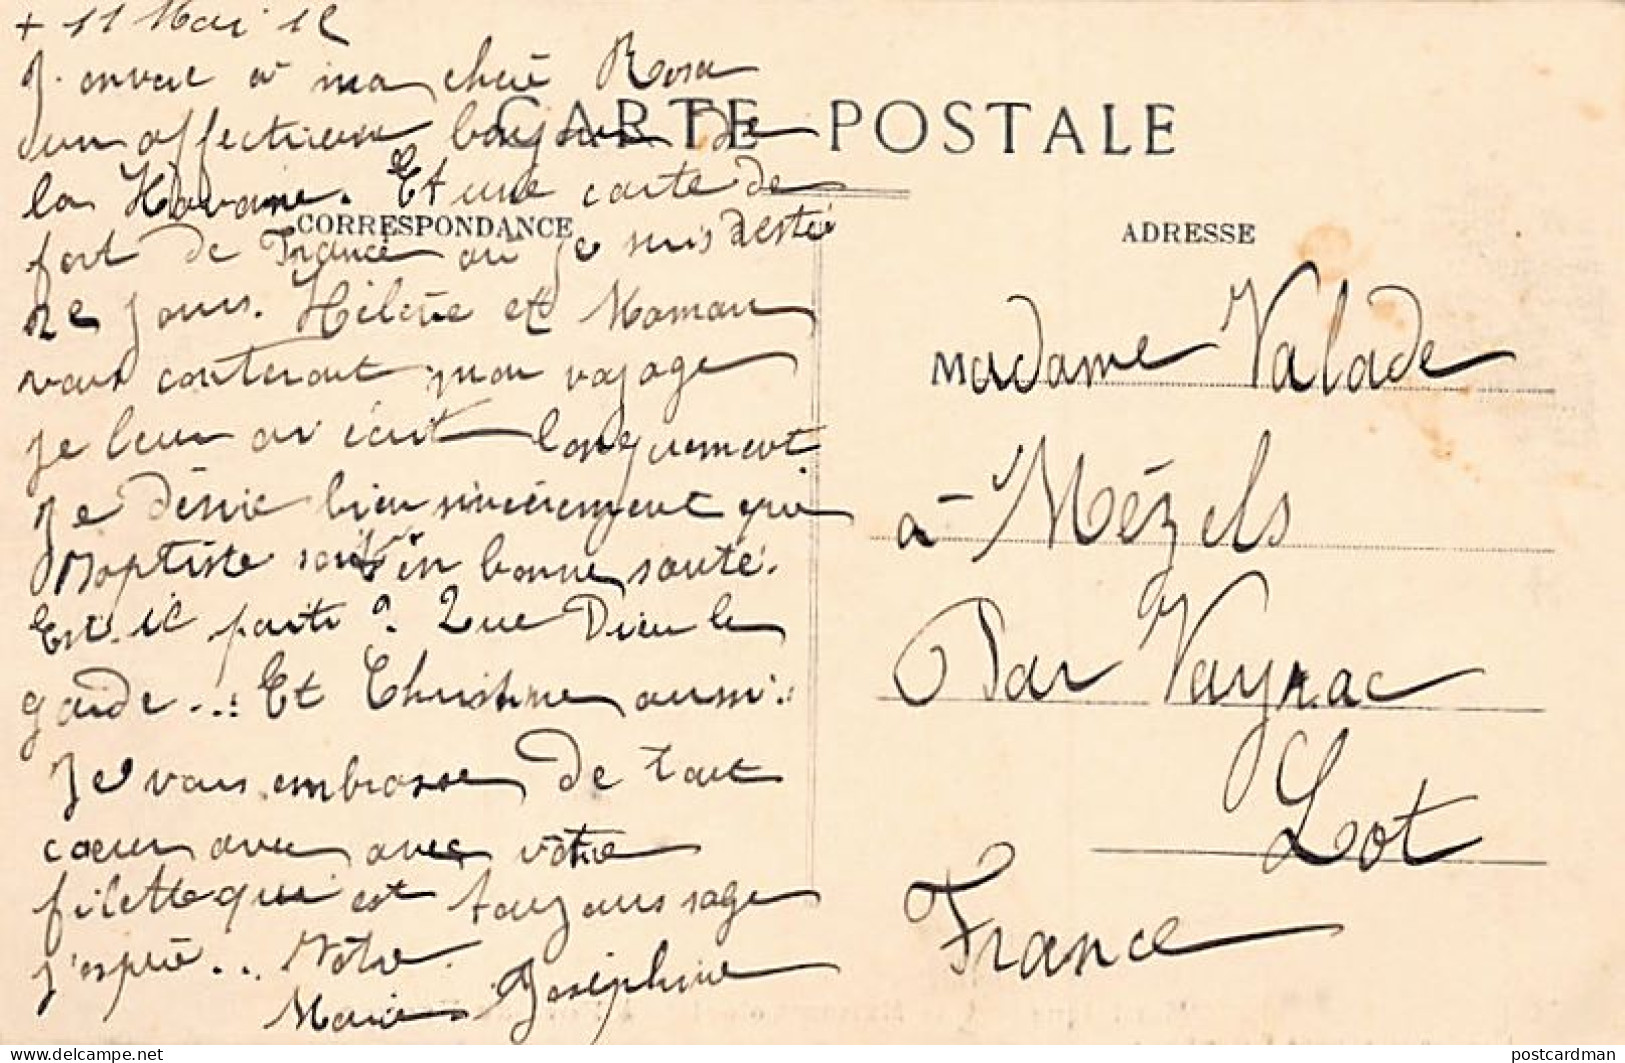 + 11 Mai 12
J'envoie à ma chère Rosa
d'un affectueux bonjour De
la Havane. Et une carte de
fort de France où je suis resté
2 jours. Hélène et Maman
vous conteront mon voyage
je leur ai écrit longuement
Je désire bien sincèrement que
Baptiste soit en bonne santé.
Est-il parti? Que Dieu le
garde... Et Christine aussi..
Je vous embrasse de tout
cœur avec votre
filette qui est toujours sage
j'espère.. Vôtre.
Marie Joséphine
CARTE POSTALE
CORRESPONDANCE
ADRESSE
Madame Valade
à Mézels
Par Vayrac
Lot
France
postcardman